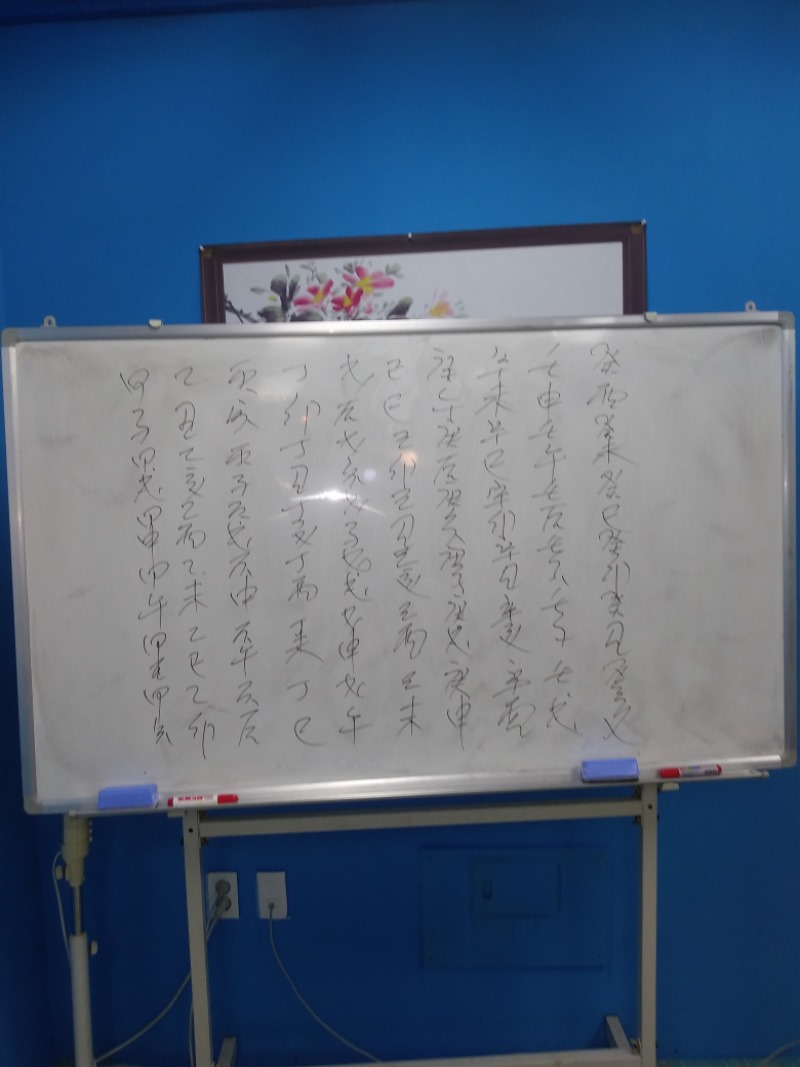 甲子甲戌甲申甲午甲辰甲寅
乙丑乙亥乙酉乙未乙巳乙卯
丙寅丙子丙戌丙申丙午丙辰
丁卯丁丑丁亥丁酉丁未丁巳
戊辰戊寅戊子戊戌戊申戊午
己巳己卯己丑己亥己酉己未
庚午庚辰庚寅庚子庚戌庚申
辛未辛巳辛卯辛丑辛亥辛酉
壬申壬午壬辰壬寅壬子壬戌
癸酉癸未癸巳癸卯癸丑癸亥